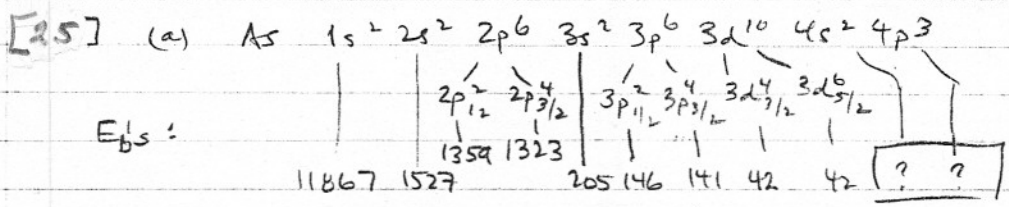 [25] (a) As 1s² 2s² 2p⁶ 3s² 3p⁶ 3d¹⁰ 4s² 4p³
2p²₁/₂ 2p⁴₃/₂ 3p²₁/₂ 3p⁴₃/₂ 3d⁴₃/₂ 3d⁶₅/₂
Eb's :
1359 1323
11867 1527 205 146 141 42 42 ? ?